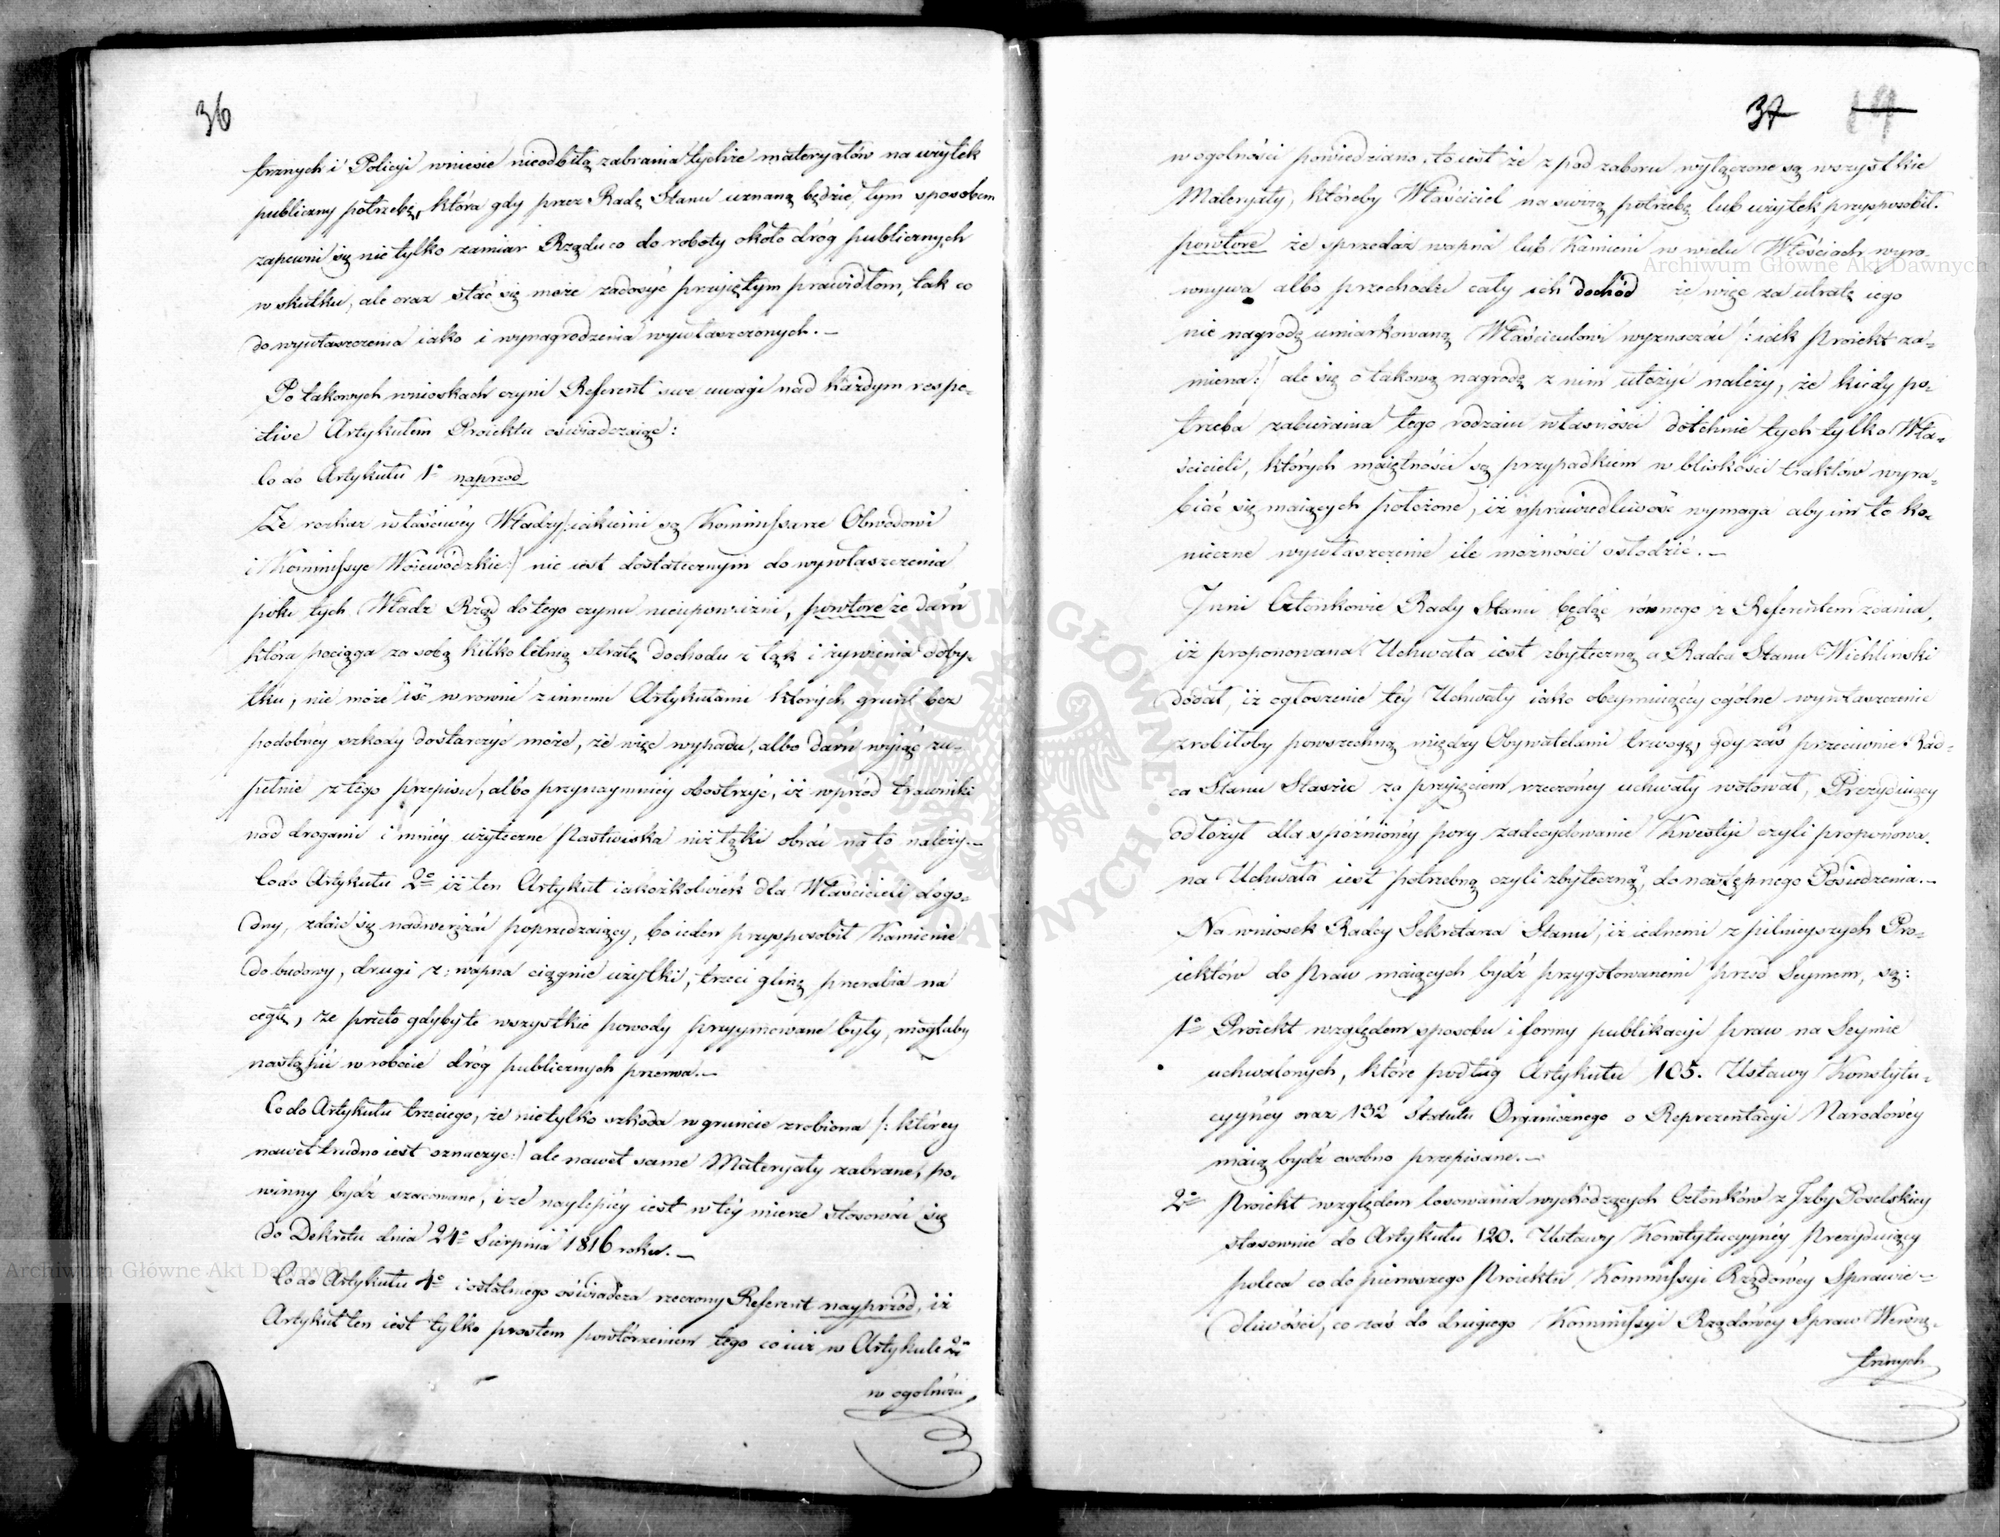 36
trznych i Policyi wniesie nieodbitą zabrania tychże materyałów na użytek
publiczny potrzebę, która gdy przez Radę Stanu uznaną będzie, tym sposobem
zapewni się nie tylko zamiar Rządu co do roboty około dróg publicznych
w skutku, ale oraz stać się może zadosyć przyiętym prawidłom, tak co
do wywłaszczenia iako i wynagrodzenia wywłaszczonych. —
Po takowych wnioskach czyni Referent swe uwagi nad każdym respe-
ctive Artykułem Proiektu oświadczaiąc:
Co do Artykułu 1º naprzod
Że rozkaz właściwey Władzy /: iakiemi są Kommissarze Obwodowi
i Kommissye Woiewodzkie :/ nie iest dostatecznym do wywłaszczenia
póki tych Władz Rząd do tego czynu nieupoważni, powtóre że darń
która pociąga za sobą kilkoletnią stratę dochodu z łąk i żywienia doby-
tku, nie może iść w rowni z innemi Artykułami których grunt bez
podobney szkody dostarczyć może, że więc wypada, albo darń wyiąć zu-
pełnie z tego przepisu, albo przynaymniey obostrzyć, iż wprzód trawniki
nad drogami i mniey użyteczne Pastwiska niż łąki obrać na to należy. —
Co do Artykułu 2º iż ten Artykuł iakożkolwiek dla Właścicieli dogo-
dny, zdaie się nadwerężać poprzedzaiący, bo ieden przysposobił Kamienie
do budowy, drugi z wapna ciągnie użytki, trzeci glinę przerabia na
cegłę, że przeto gdyby te wszystkie powody przyymowane były, mogłaby
nastąpić w robocie dróg publicznych przerwa. —
Co do Artykułu trzeciego, że nietylko szkoda w gruncie zrobiona /: którey
nawet trudno iest oznaczyć :/ ale nawet same Materyały zabrane, po-
winny bydź szacowane, i że naylepiey iest w tey mierze stosować się
do Dekretu dnia 24º Sierpnia 1816 roku. —
Co do Artykułu 4º i ostatniego oświadcza rzeczony Referent nayprzód, iż
Artykuł ten iest tylko prostem powtórzeniem tego co iuż w Artykule 2m
w ogolności
37 19
w ogolności powiedziano, to iest że z pod zaboru wyłączone są wszystkie
Materyały, któreby Właściciel na swoią potrzebę lub użytek przysposobił.
powtóre że sprzedaż wapna lub Kamieni w wielu Włościach wyro-
wnywa albo przechodzi cały ich dochód że więc za utratę iego
nie nagrodę umiarkowaną Właścicielowi wyznaczać /: iak Proiekt za-
mierza :/ ale się o takową nagrodę z nim ułożyć należy, że kiedy po-
trzeba zabierania tego rodzaiu własności dotchnie tych tylko Wła-
ścicieli, których maiętności są przypadkiem w bliskości traktów wyra-
biać się maiących położone, iż sprawiedliwość wymaga aby im to ko-
nieczne wywłaszczenie ile możności osłodzić. —
Inni Członkowie Rady Stanu będąc rownego z Referentem zdania,
iż proponowana Uchwała iest zbyteczną a Radca Stanu Wichliński
dodał, iż ogłoszenie tey Uchwały iako obeymuiącey ogólne wywłaszczenie
zrobiłoby powszechną między Obywatelami trwogę, gdy zaś przeciwnie Rad-
ca Stanu Staszic za przyięciem rzeczoney uchwały wotował, Prezyduiący
odłożył dla spóźnioney pory zadecydowanie Kwestyi czyli proponowa-
na Uchwała iest potrzebną czyli zbyteczną, do następnego Posiedzenia. —
Na wniosek Radcy Sekretarza Stanu, iż iednemi z pilnieyszych Pro-
iektów do Praw maiących bydź przygotowanemi przed Seymem, są:
1º Proiekt względem sposobu i formy publikacyi praw na Seymie
uchwalonych, które podług Artykułu 105. Ustawy Konstytu-
cyyney oraz 132 Statutu Organicznego o Reprezentacyi Narodowey
maią bydź osobno przepisane. —
2º Proiekt względem losowania wychodzących Członków z Izby Poselskiey
stosownie do Artykułu 120. Ustawy Konstytucyyney Prezyduiący
poleca co do pierwszego Proiektu Kommissyi Rządowey Sprawie-
dliwości, co zaś do drugiego Kommissyi Rządowey Spraw Wewnę-
trznych
Archiwum Główne Akt Dawnych
Archiwum Główne Akt Dawnych
ARCHIWUM GŁÓWNE AKT DAWNYCH